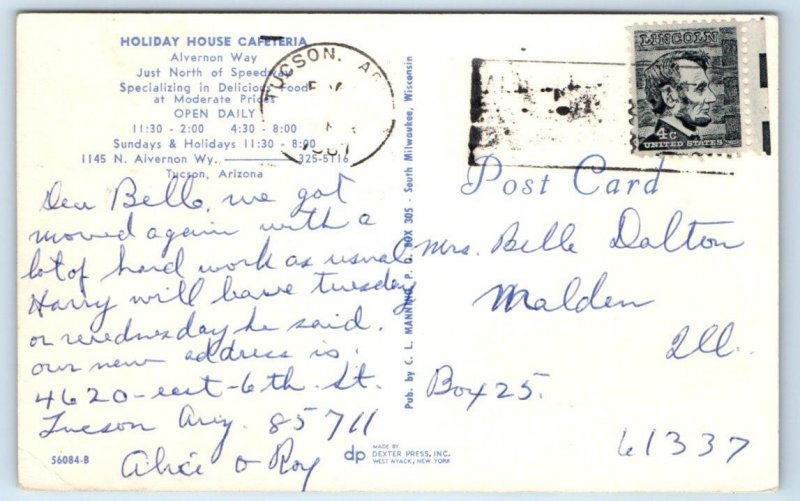 HOLIDAY HOUSE CAFETERIA
Alvernon Way
Just North of Speedway
Specializing in Delicious Food
at Moderate Prices
OPEN DAILY
11:30 - 2:00 4:30 - 8:00
Sundays & Holidays 11:30 - 8:00
1145 N. Alvernon Wy. 325-5116
Tucson, Arizona
Dear Belle, we got
moved again with a
lot of hard work as usual
Harry will leave tuesday
or wednesday he said.
our new address is.
4620-east-6th. St.
Tucson Ariz. 85711
Alice & Roy
56084-B
dp MADE BY
DEXTER PRESS, INC.
WEST NYACK, NEW YORK
Pub. by C. L. MANNING, P. O. BOX 305 - South Milwaukee, Wisconsin
TUCSON,
LINCOLN
4c
UNITED STATES
Post Card
Mrs. Belle Dalton
Malden
Ill.
Box 25.
61337